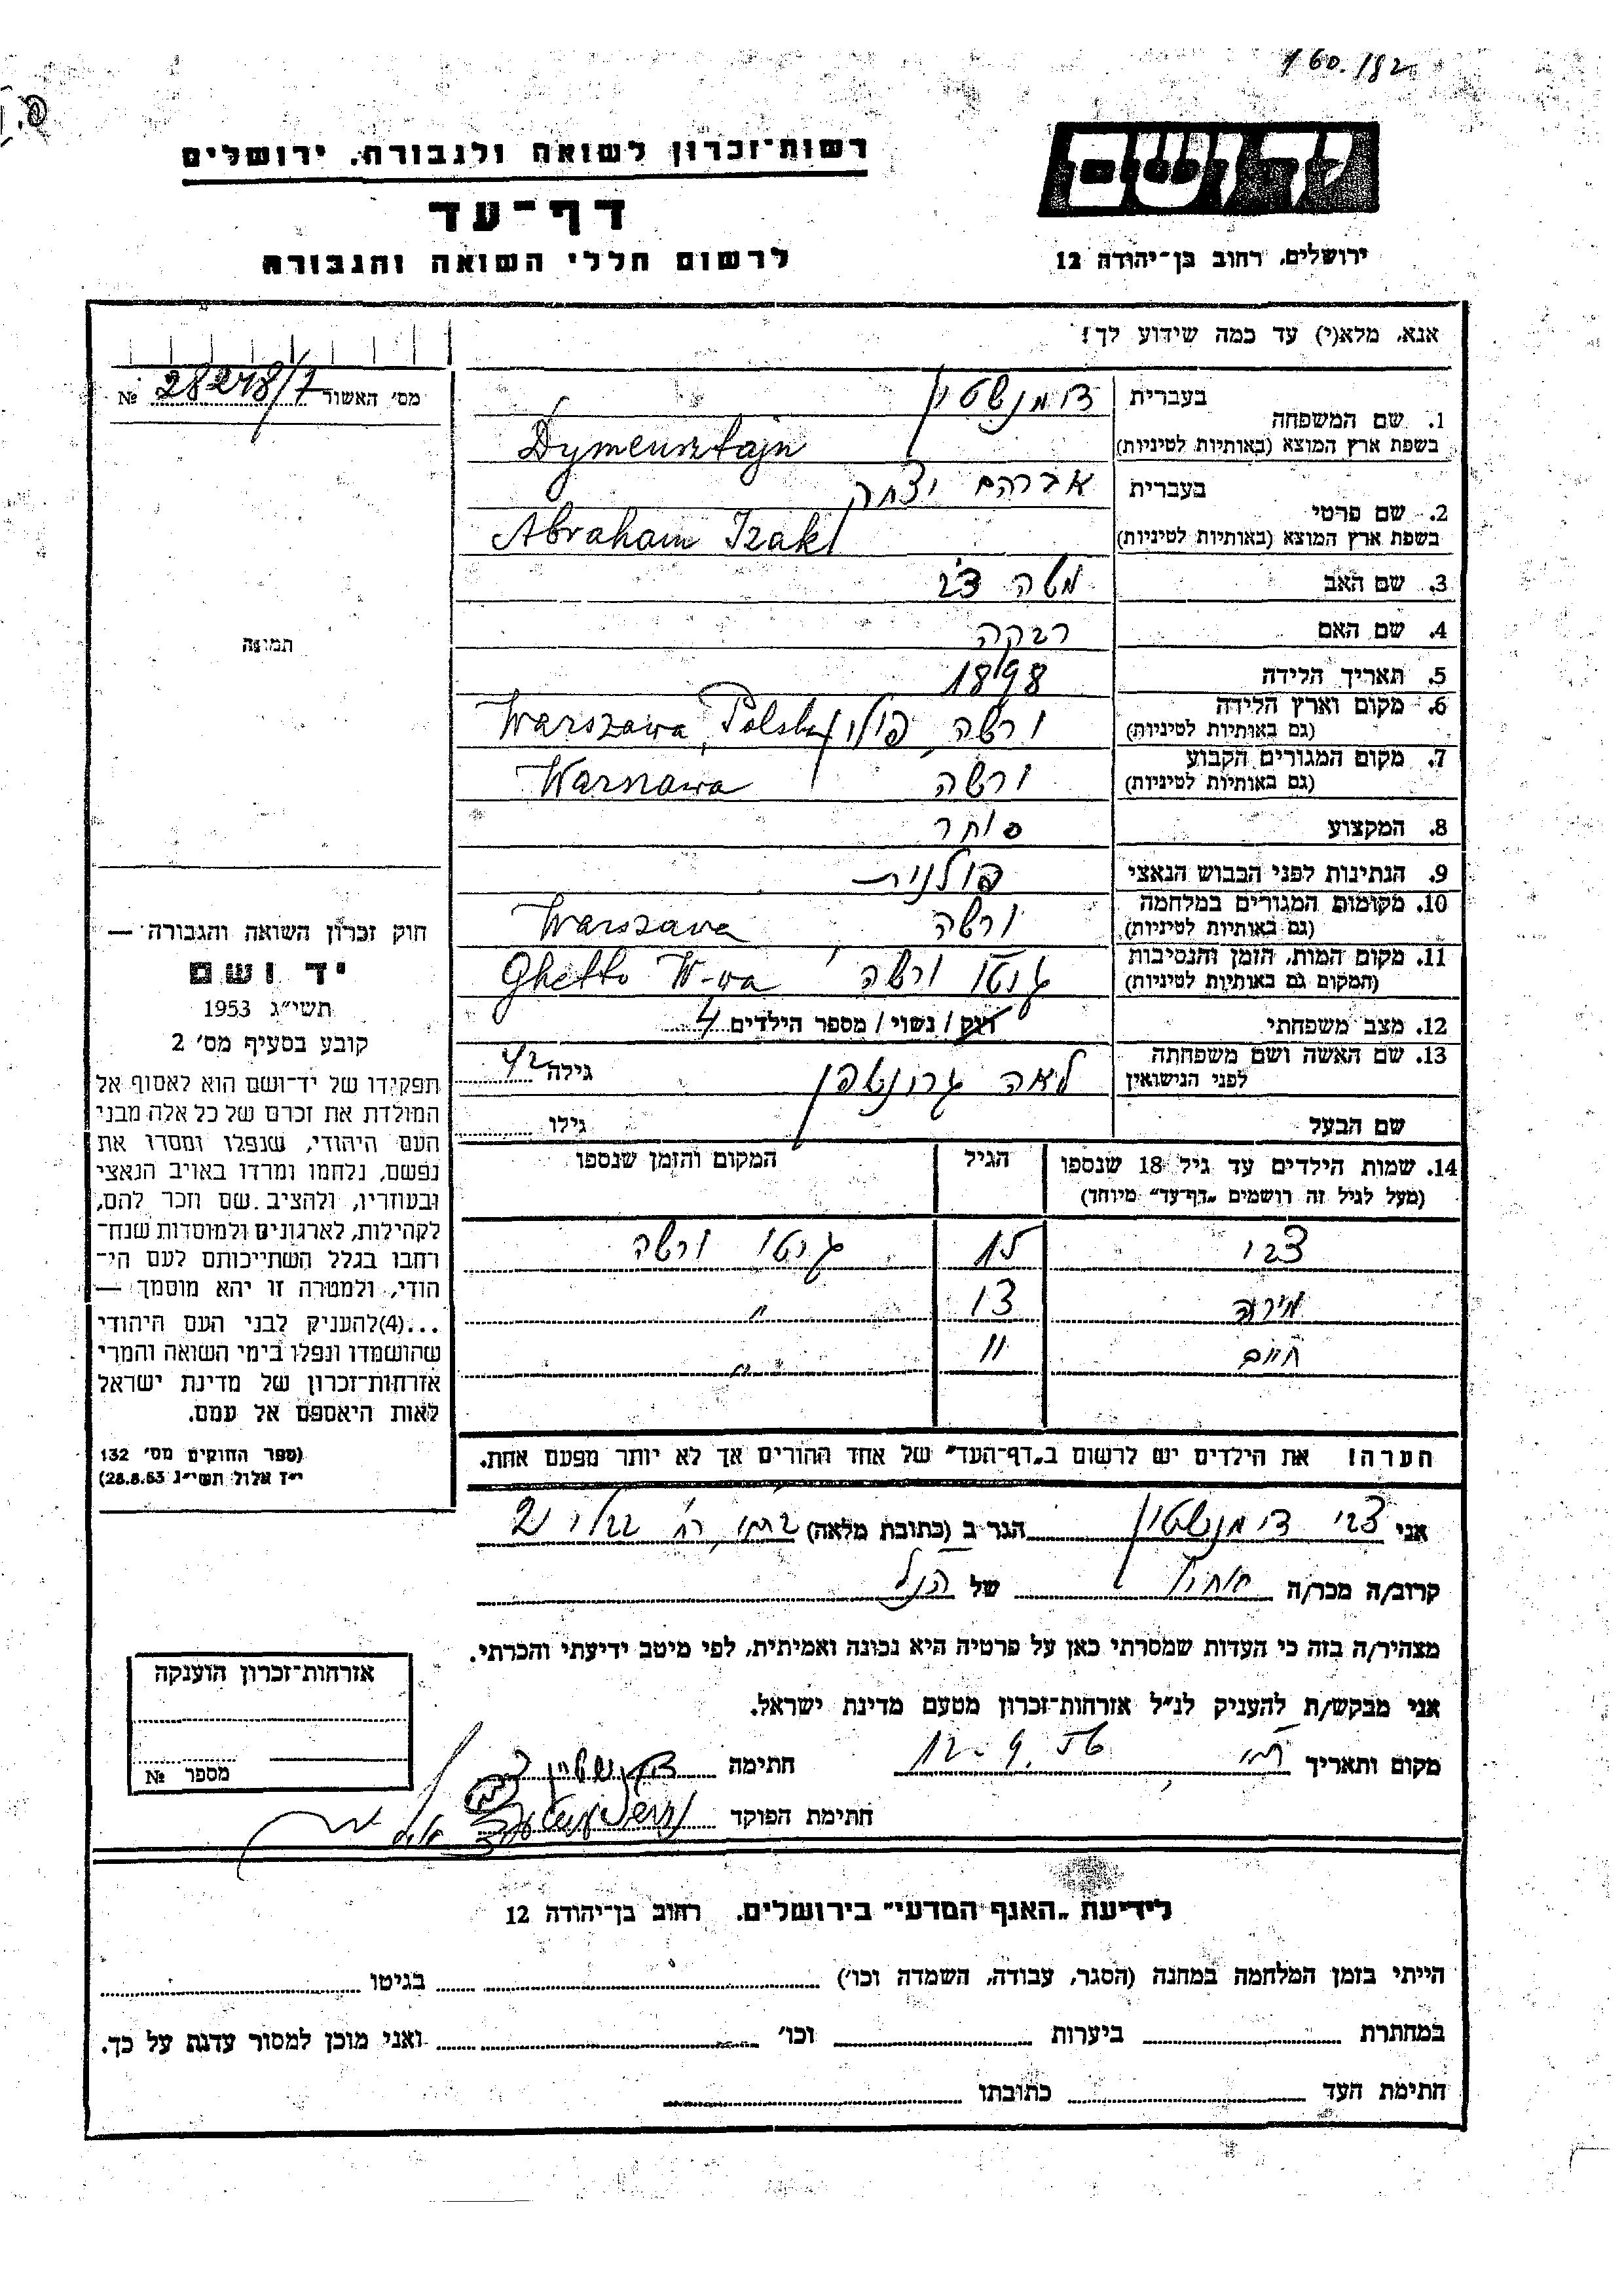 160.182
יד ושם
ירושלים, רחוב בן־יהודה 12
רשות־זכרון לשואה ולגבורה, ירושלים
דף־עד
לרשום חללי השואה והגבורה
אנא, מלא(י) עד כמה שידוע לך!
מס׳ האשור 28248/7 №
תמונה
1. שם המשפחה בעברית דימנשטין
בשפת ארץ המוצא (באותיות לטיניות) Dymensztajn
2. שם פרטי בעברית אברהם יצחק
בשפת ארץ המוצא (באותיות לטיניות) Abraham Izak
3. שם האב משה צבי
4. שם האם רבקה
5. תאריך הלידה 1898
6. מקום וארץ הלידה ורשה, פולין Warszawa, Polska
(גם באותיות לטיניות)
7. מקום המגורים הקבוע ורשה Warszawa
(גם באותיות לטיניות)
8. המקצוע סוחר
9. הנתינות לפני הכבוש הנאצי פולנית
10. מקומות המגורים במלחמה ורשה Warszawa
(גם באותיות לטיניות)
11. מקום המות, הזמן והנסיבות גטו ורשה Ghetto W-wa
(המקום גם באותיות לטיניות)
12. מצב משפחתי רווק / נשוי / מספר הילדים 4
13. שם האשה ושם משפחתה לאה גרונטפן גילה 42
לפני הנישואין
שם הבעל גילו
14. שמות הילדים עד גיל 18 שנספו הגיל המקום והזמן שנספו
(מעל לגיל זה רושמים „דף־עד״ מיוחד)
צבי 15 גטו ורשה
מירה 13 "
חיים 11 "
הערה! את הילדים יש לרשום ב„דף־העד״ של אחד ההורים אך לא יותר מפעם אחת.
חוק זכרון השואה והגבורה —
יד ושם
תשי״ג 1953
קובע בסעיף מס׳ 2
תפקידו של יד־ושם הוא לאסוף אל
המולדת את זכרם של כל אלה מבני
העם היהודי, שנפלו ומסרו את
נפשם, נלחמו ומרדו באויב הנאצי
ובעוזריו, ולהציב שם וזכר להם,
לקהילות, לארגונים ולמוסדות שנח־
רחבו בגלל השתייכותם לעם הי־
הודי, ולמטרה זו יהא מוסמך —
...(4)להעניק לבני העם היהודי
שהושמדו ונפלו בימי השואה והמרי
אזרחות־זכרון של מדינת ישראל
לאות היאספם אל עמם.
(ספר החוקים מס׳ 132
י״ז אלול תשי״ג 28.8.53)
אני צבי דימנשטין הגר ב (כתובת מלאה)
קרוב/ה מכר/ה אחיין של הנ״ל
מצהיר/ה בזה כי העדות שמסרתי כאן על פרטיה היא נכונה ואמיתית, לפי מיטב ידיעתי והכרתי.
אני מבקש/ת להעניק לנ״ל אזרחות־זכרון מטעם מדינת ישראל.
מקום ותאריך 12.9.56 חתימה
חתימת הפוקד
אזרחות־זכרון הוענקה
מספר №
לידיעת „האגף המדעי״ בירושלים, רחוב בן־יהודה 12
הייתי בזמן המלחמה במחנה (הסגר, עבודה, השמדה וכו׳) בגיטו
במחתרת ביערות וכו׳ ואני מוכן למסור עדות על כך.
חתימת העד כתובתו